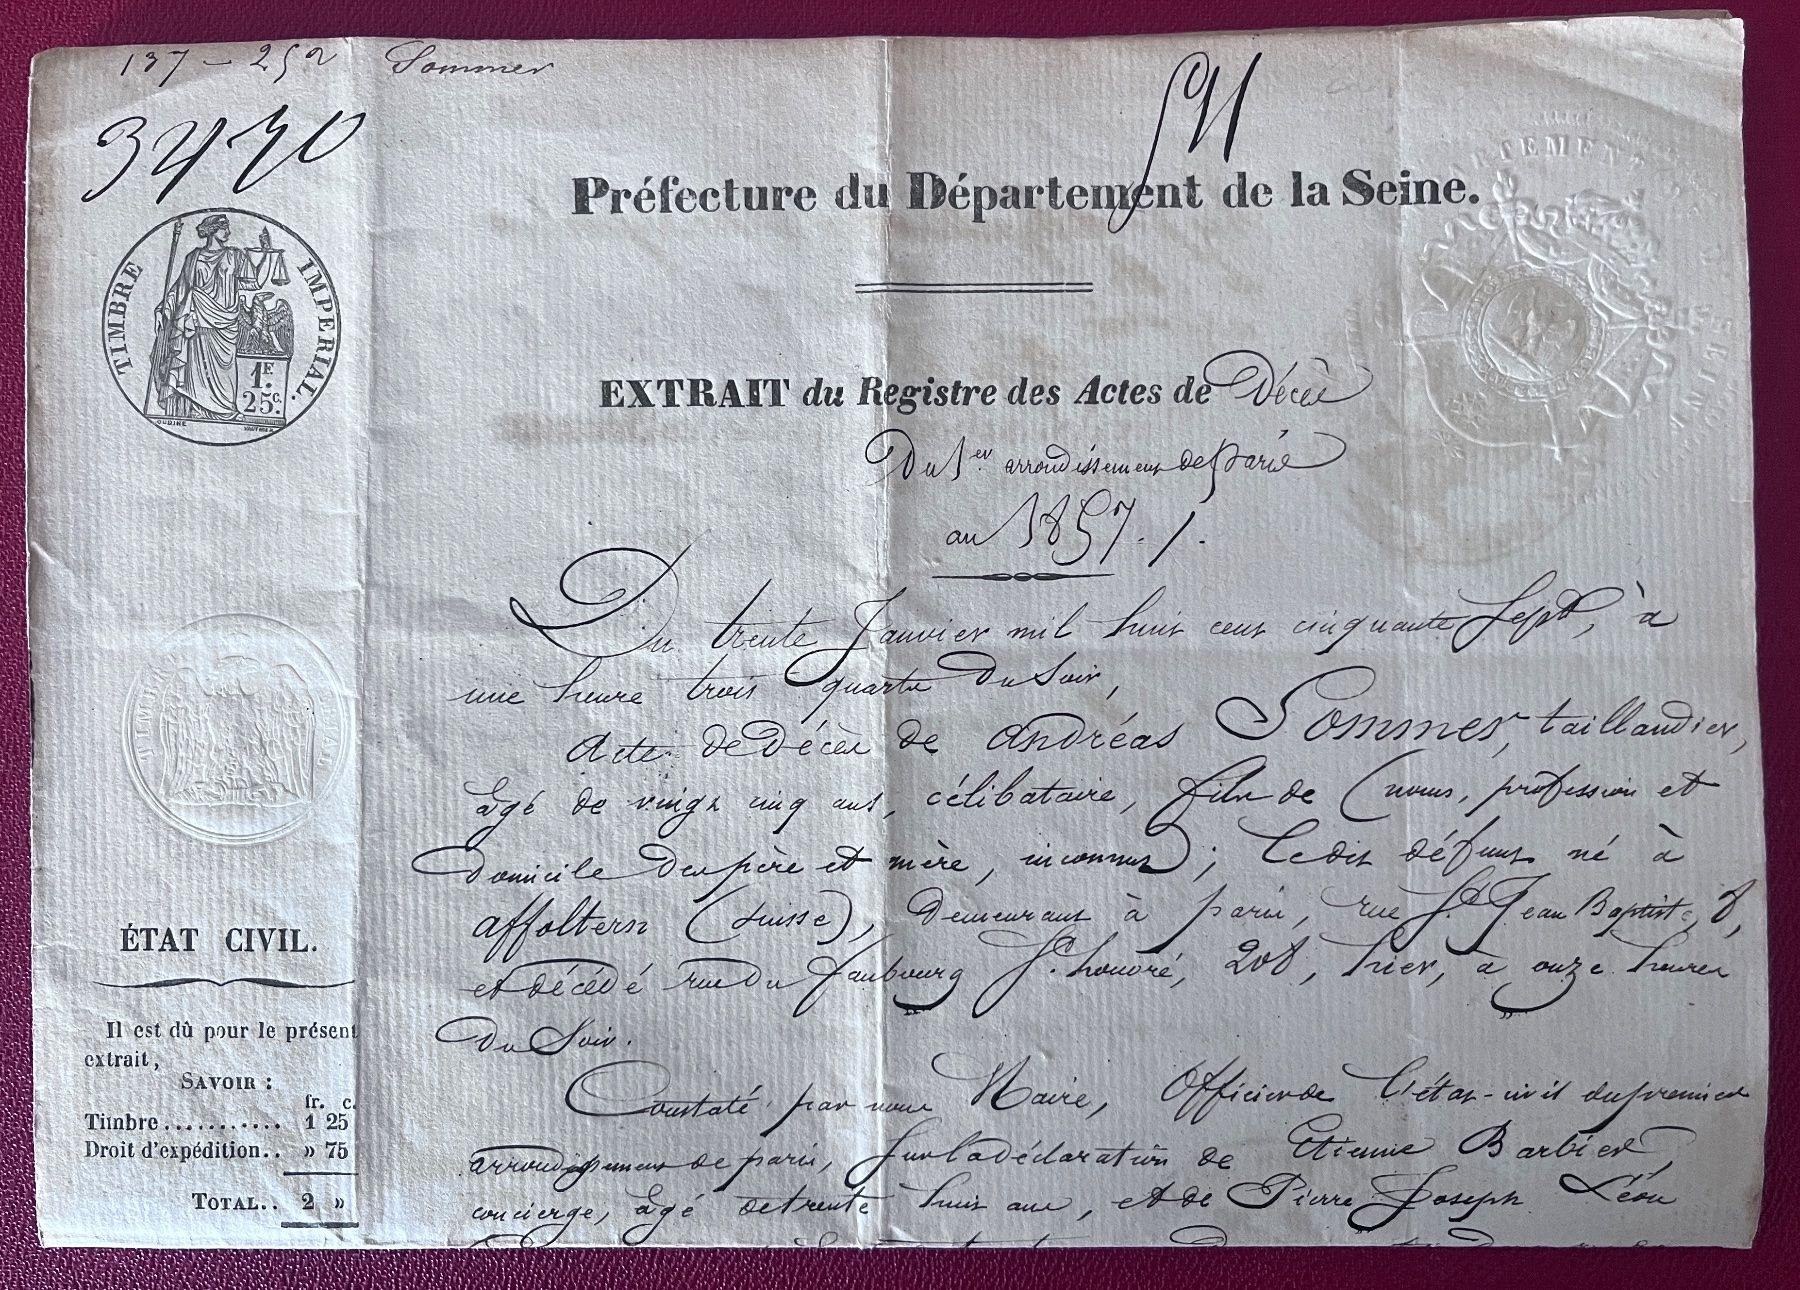 137 - 252 Sommer
3470
Préfecture du Département de la Seine.
TIMBRE IMPERIAL.
1F.
25c.
OUDINE
EXTRAIT du Registre des Actes de Décès
Du 1er arrondissement de Paris
an 1857. /.
Du trente Janvier mil huit cent cinquante Sept, à
une heure trois quarts du Soir,
Acte de Décès de Andréas Sommer, taillandier,
âgé de vingt cinq ans, célibataire, fils de (noms, profession et
domicile des père et mère, inconnus); Ledit défunt né à
affoltern (Suisse), demeurant à paris, rue St. Jean Baptiste, 8,
et décédé rue du faubourg St. honoré, 208, hier, à onze heures
du Soir.
Constaté par nous Maire, Officier de l'état-civil du premier
arrondissement de paris, Sur la déclaration de Etienne Barbier,
concierge, âgé de trente huit ans, et de Pierre Joseph Léon
TIMBRE
ÉTAT CIVIL.
Il est dû pour le présent
extrait,
SAVOIR :
fr. c.
Timbre........... 1 25
Droit d'expédition.. » 75
TOTAL.. 2 »
ARTEMENT
SEINE